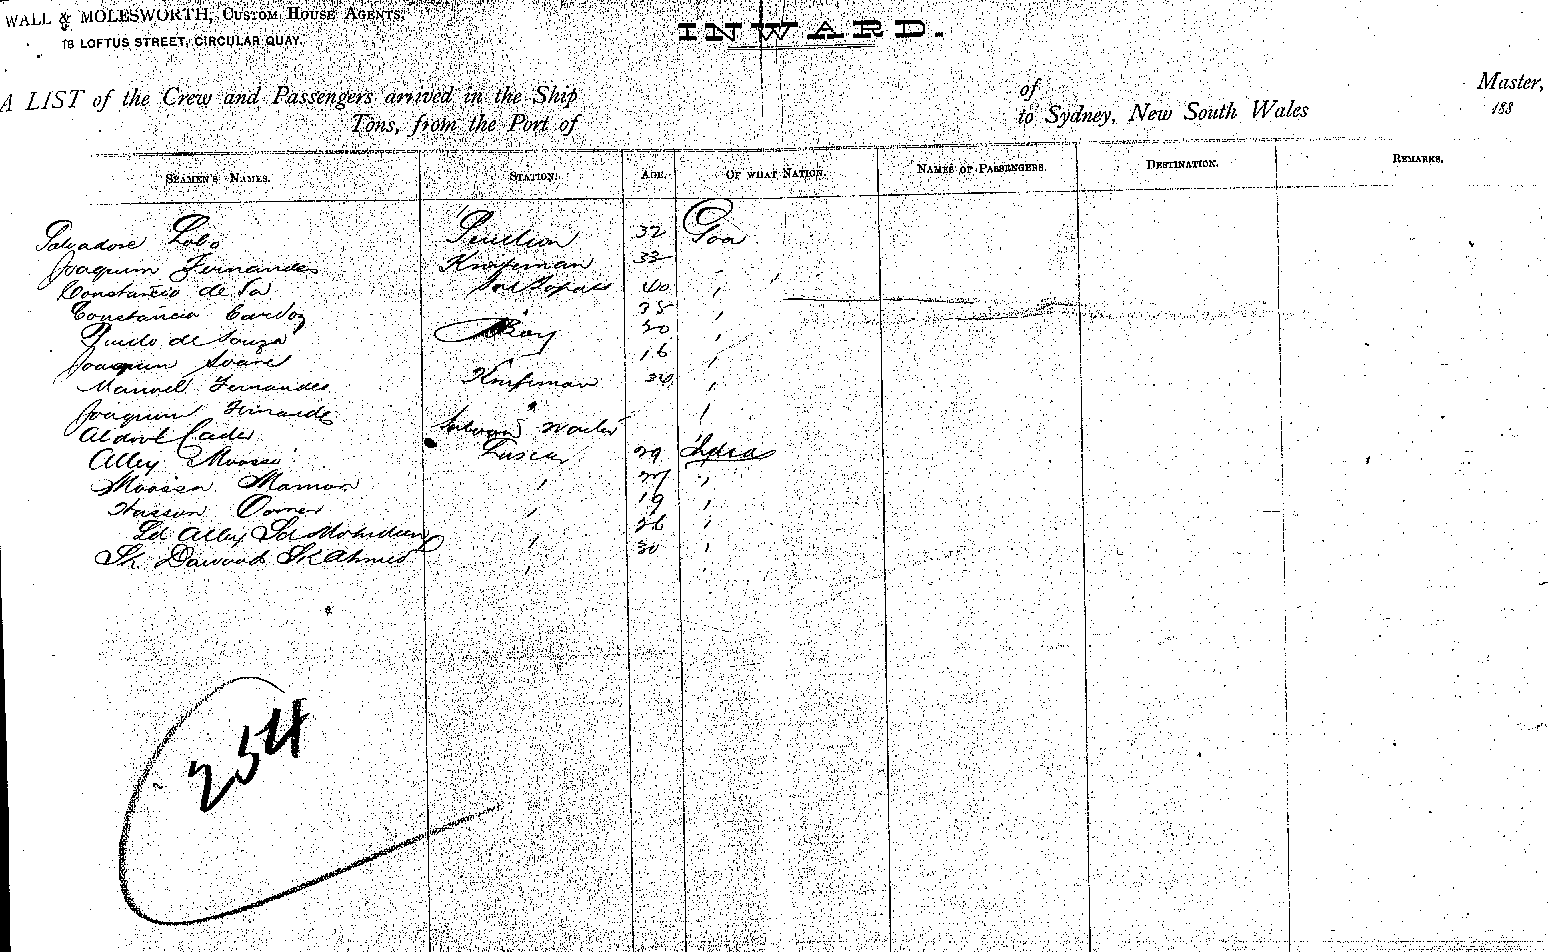 WALL & MOLESWORTH, CUSTOM HOUSE AGENTS,
18 LOFTUS STREET, CIRCULAR QUAY.
INWARD.
A LIST of the Crew and Passengers arrived in the Ship of Master,
Tons, from the Port of to Sydney, New South Wales 188
SEAMEN'S NAMES. STATION. AGE. OF WHAT NATION. NAMES OF PASSENGERS. DESTINATION. REMARKS.
Salvadore Lobo 32 Goa
Joaquim Fernandes 33 "
Constancio de Sa 40 "
Constancio Cardoz 35 "
de Souza Boy 30 "
Joaquim Soare 16 "
Manoel Fernandes 34 "
Joaquim "
Cader
Alley Moosa Lascar 29 India
Moosa Mamon " 27 "
Hasson Oomer " 19 "
Sd Alley Sd Mohideen " 26 "
Sk Dawood Sk Ahmed " 30 "
254